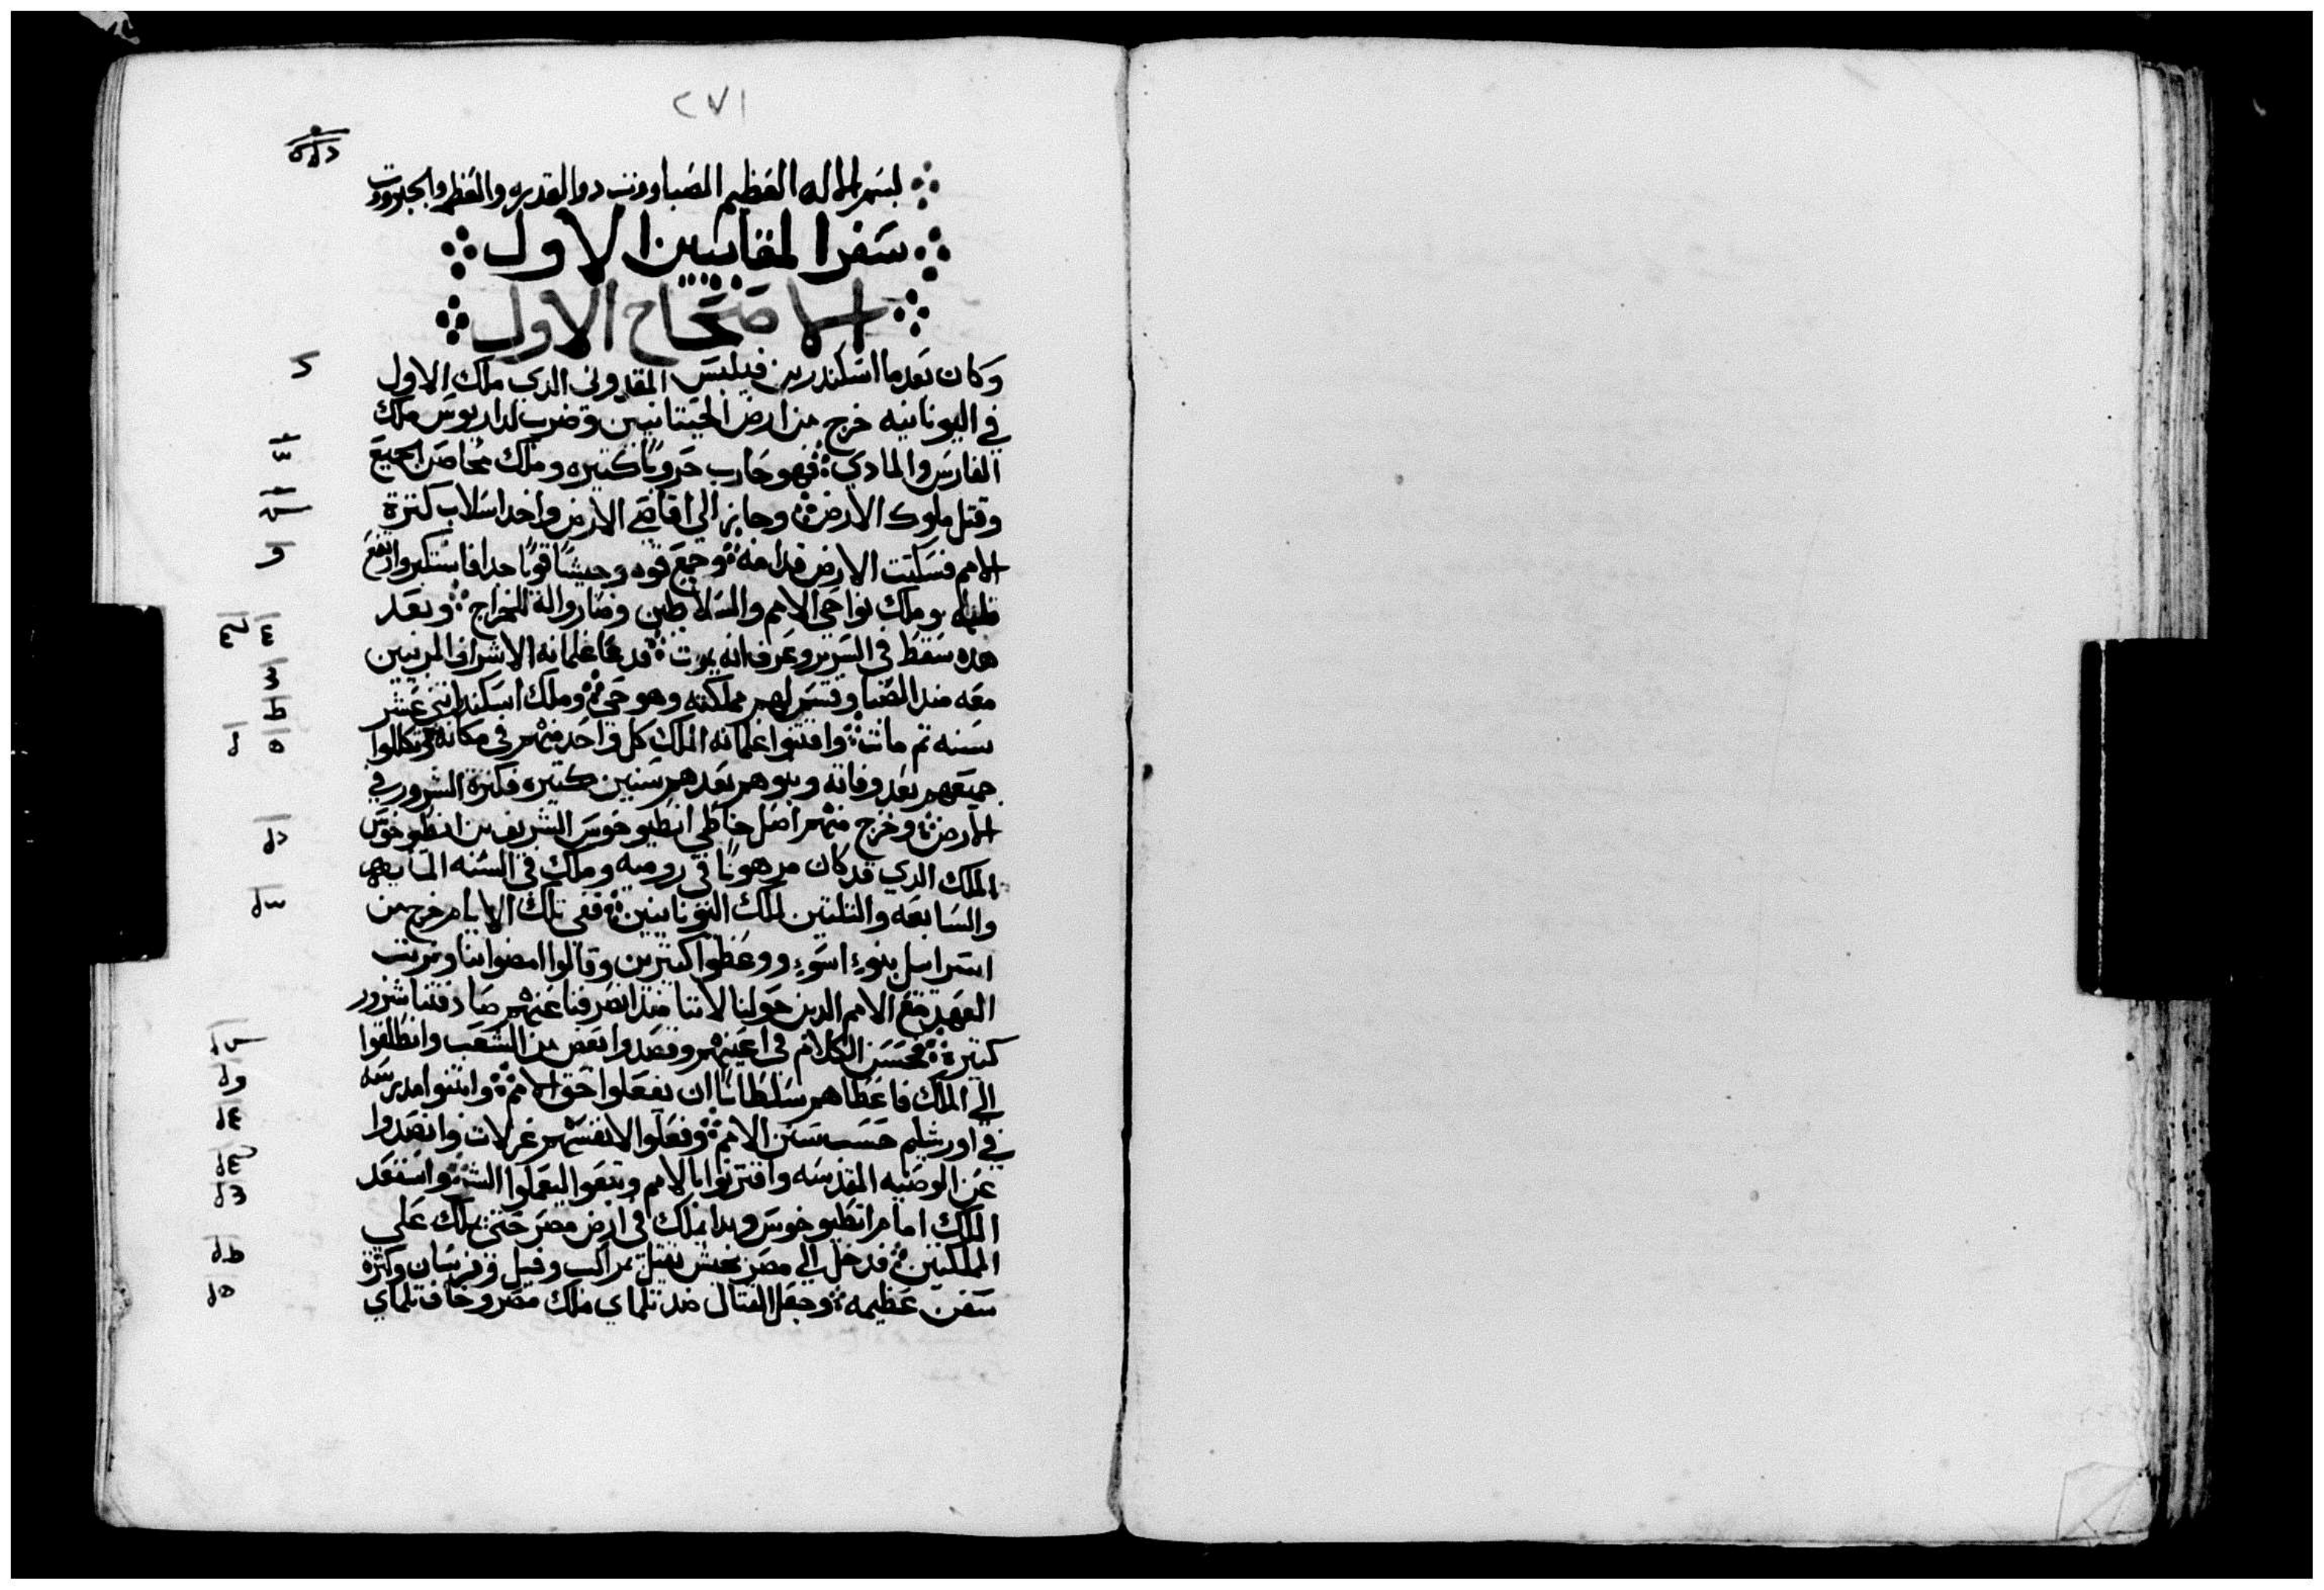 ٢٧١
بسم الاله العظيم الصباووت دو القدره والعظم والجبروت
سفر المقابيين الاول
الاصحاح الاول
وكان بعدما اسكندر بن فيلبس المقدوني الدي ملك الاول
في اليونانيه خرج من ارض الحيتانيين وضرب لداريوس ملك
الفارس والمادي فهو حارب حروبًا كتيره وملك محاصن الجميع
وقتل ملوك الارض وجاز الي اقاصي الارض واخد اسلاب كترة
الامم فسكتت الارض قدامه وجمع قوه وجيشًا قويًا جدا فاستكبر وارتفع
قلبه وملك نواحي الامم والسلاطين وصاروا له للخراج وبعد
هده سقط في السرير وعرف انه يموت فدعا غلمانه الاشراف المربيين
معه مند الصبا وقسم لهم مملكته وهو حي وملك اسكندر اتني عشر
سنه تم مات واقتنوا غلمانه الملك كل واحد منهم في مكانه وتكللوا
جميعهم بعد وفاته وبنوهم بعدهم سنين كتيره فكترة الشرور في
الارض وخرج منهم اصل خاطي انطيوخوس الشريف بن انطيوخوس
الملك الدي قد كان مرهونًا في روميه وملك في السنه المايه
والسابعه والتلتين لملك اليونانيين ففي تلك الايام خرج من
اسراييل بنوا اسوء ووعظوا كتيرين وقالوا امضوا بنا ونرتب
العهد مع الامم الدين حولنا لاننا مند انصرفنا عنهم صادفتنا شرور
كتيرة فحسن الكلام في اعينهم وقصدوا بعض من الشعب وانطلقوا
الي الملك فاعطاهم سلطانًا ان يفعلوا حق الامم وابتنوا مدرسه
في اورشليم حسب سنن الامم وفعلوا لانفسهم غرلات وابتعدوا
عن الوصيه المقدسه واقتربوا بالامم وبيعوا ليعملوا الشر واستعد
الملك امام انطيوخوس وبدا يملك في ارض مصر حتى يملك علي
المملكتين فدخل الي مصر بجيش تقيل بمراكب وفيل وفرسان وكترة
سفن عظيمه وجعل القتال ضد تلماي ملك مصر وخاف تلماي